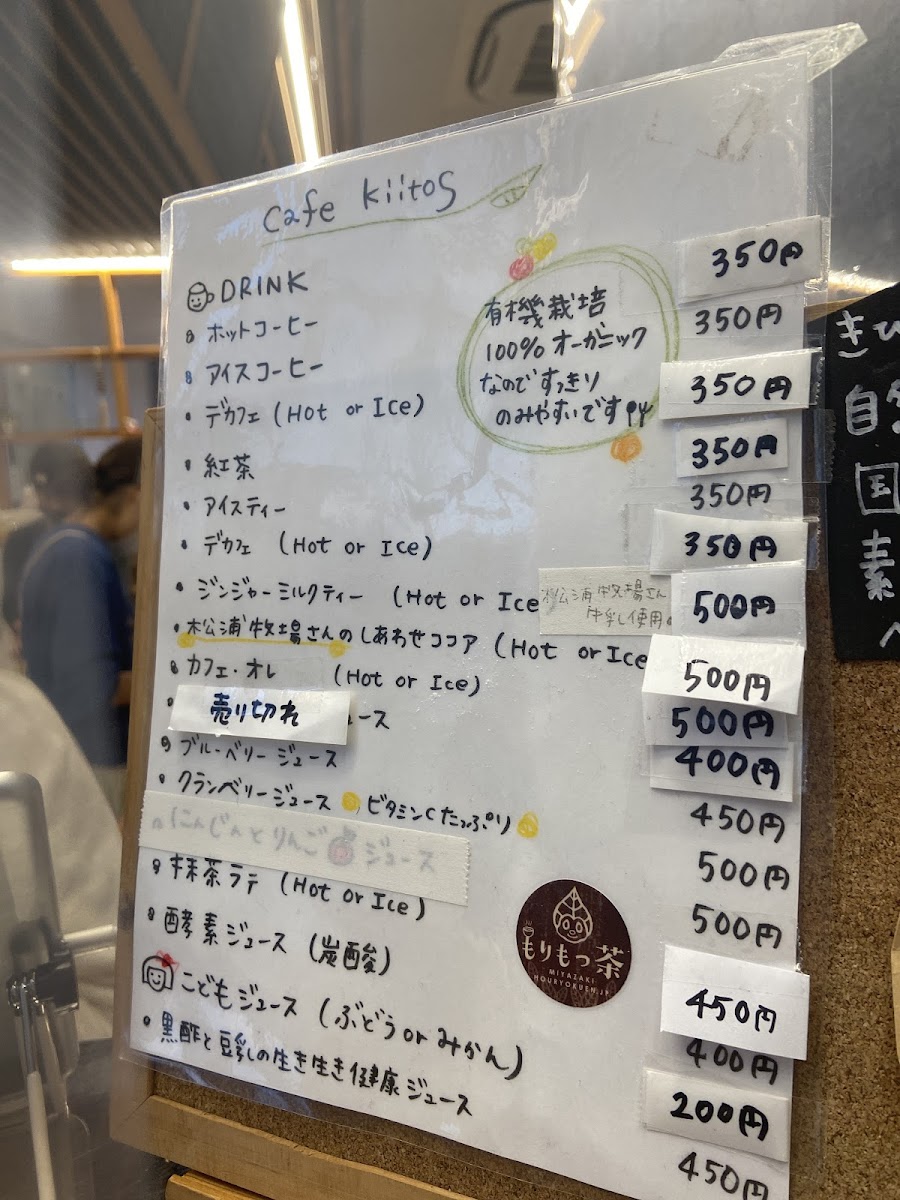 Cafe kiitos
DRINK
ホットコーヒー 350円
アイスコーヒー 350円
デカフェ (Hot or Ice) 350円
紅茶 350円
アイスティー 350円
デカフェ (Hot or Ice) 350円
ジンジャーミルクティー (Hot or Ice 500円
松浦牧場さん
牛乳使用
松浦牧場さんのしあわせココア (Hot or Ice 500円
カフェ・オレ (Hot or Ice) 500円
売り切れ ュース 400円
ブルーベリージュース 450円
クランベリージュース ビタミンCたっぷり 500円
にんじんとりんごジュース 500円
抹茶ラテ (Hot or Ice) 450円
酵素ジュース (炭酸) 400円
こどもジュース (ぶどう or みかん) 200円
黒酢と豆乳の生き生き健康ジュース 450円
有機栽培
100% オーガニック
なのですっきり
のみやすいです
もりもっ茶
MIYAZAKI
HOURYOKUEN.JP
きび
自然
国
素